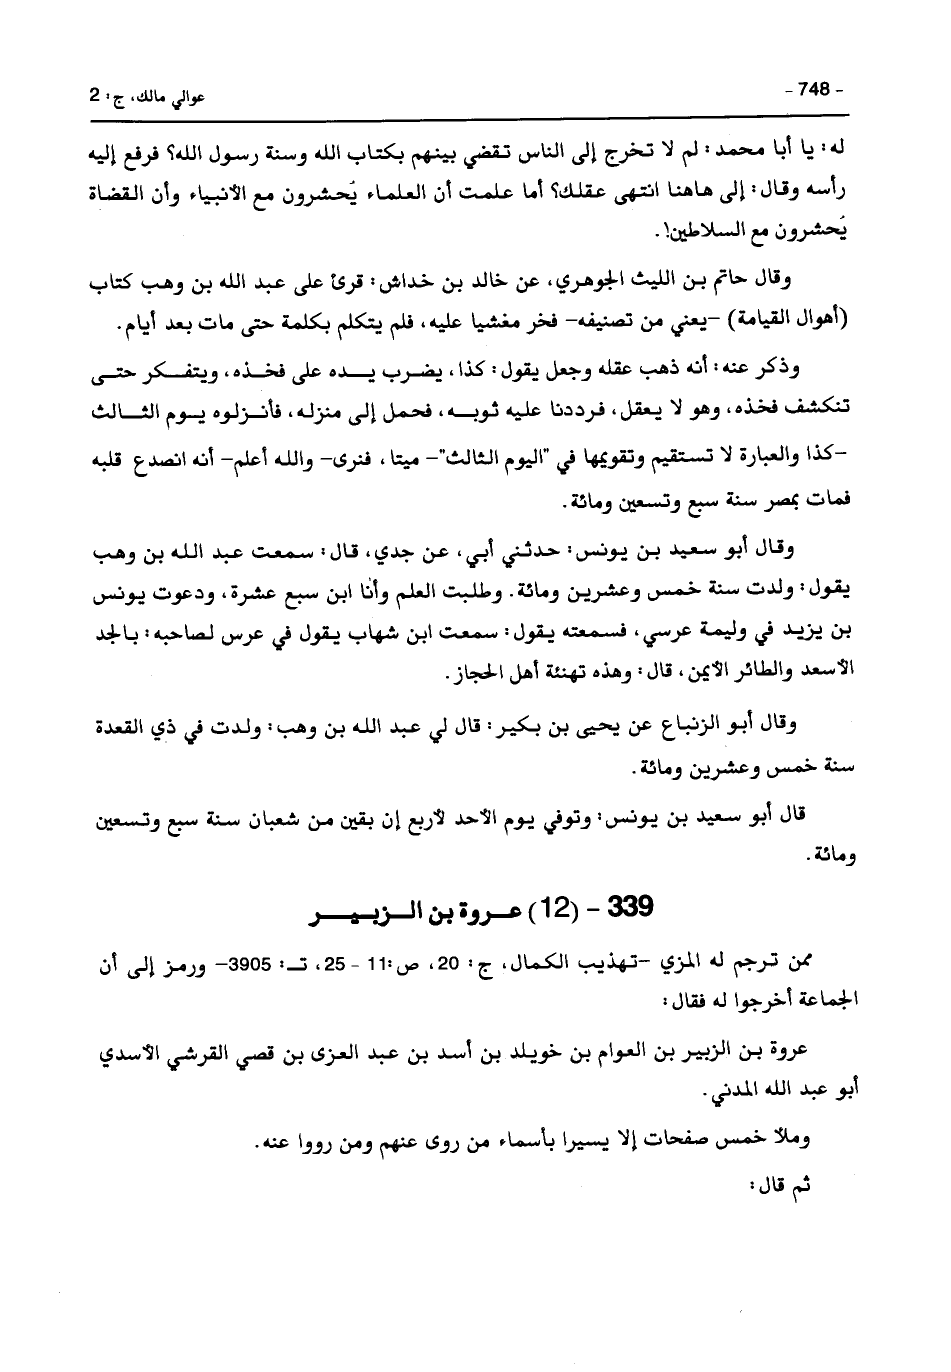 - 748 -
عوالي مالك، ج: 2
له: يا أبا محمد: لم لا تخرج إلى الناس تقضي بينهم بكتاب الله وسنة رسول الله؟ فرفع إليه
رأسه وقال: إلى هاهنا انتهى عقلك؟ أما علمت أن العلماء يُحشرون مع الأنبياء وأن القضاة
يُحشرون مع السلاطين!.
وقال حاتم بن الليث الجوهري، عن خالد بن خداش: قرئ على عبد الله بن وهب كتاب
(أهوال القيامة) -يعني من تصنيفه- فخر مغشيا عليه، فلم يتكلم بكلمة حتى مات بعد أيام.
وذكر عنه: أنه ذهب عقله وجعل يقول: كذا، يضرب يـــده على فخـذه، ويتفـــكر حتـى
تنكشف فخذه، وهو لا يعقل، فرددنا عليه ثوبـــه، فحمل إلى منزله، فأنـزلوه يـــوم الثـــالث
-كذا والعبارة لا تستقيم وتقويمها في "اليوم الثالث"- ميتا، فنرى- والله أعلم- أنه انصدع قلبه
فمات بمصر سنة سبع وتسعين ومائة.
وقال أبو سعيد بن يونس: حدثني أبي، عن جدي، قال: سمعت عبد الله بن وهب
يقول: ولدت سنة خمس وعشرين ومائة. وطلبت العلم وأنا ابن سبع عشرة، ودعوت يونس
بن يزيد في وليمة عرسي، فسمعته يقول: سمعت ابن شهاب يقول في عرس لصاحبه: بالجد
الأسعد والطائر الأيمن، قال: وهذه تهنئة أهل الحجاز.
وقال أبو الزنباع عن يحيى بن بكير: قال لي عبد الله بن وهب: ولدت في ذي القعدة
سنة خمس وعشرين ومائة.
قال أبو سعيد بن يونس: وتوفي يوم الأحد لأربع إن بقين من شعبان سنة سبع وتسعين
ومائة.
339 - (12) عـــروة بن الـــزبـيـــــر
ممن ترجم له المزي -تهذيب الكمال، ج: 20، ص:11 - 25، تــ: 3905- ورمز إلى أن
الجماعة أخرجوا له فقال:
عروة بن الزبير بن العوام بن خويلد بن أسد بن عبد العزى بن قصي القرشي الأسدي
أبو عبد الله المدني.
وملأ خمس صفحات إلا يسيرا بأسماء من روى عنهم ومن رووا عنه.
ثم قال: